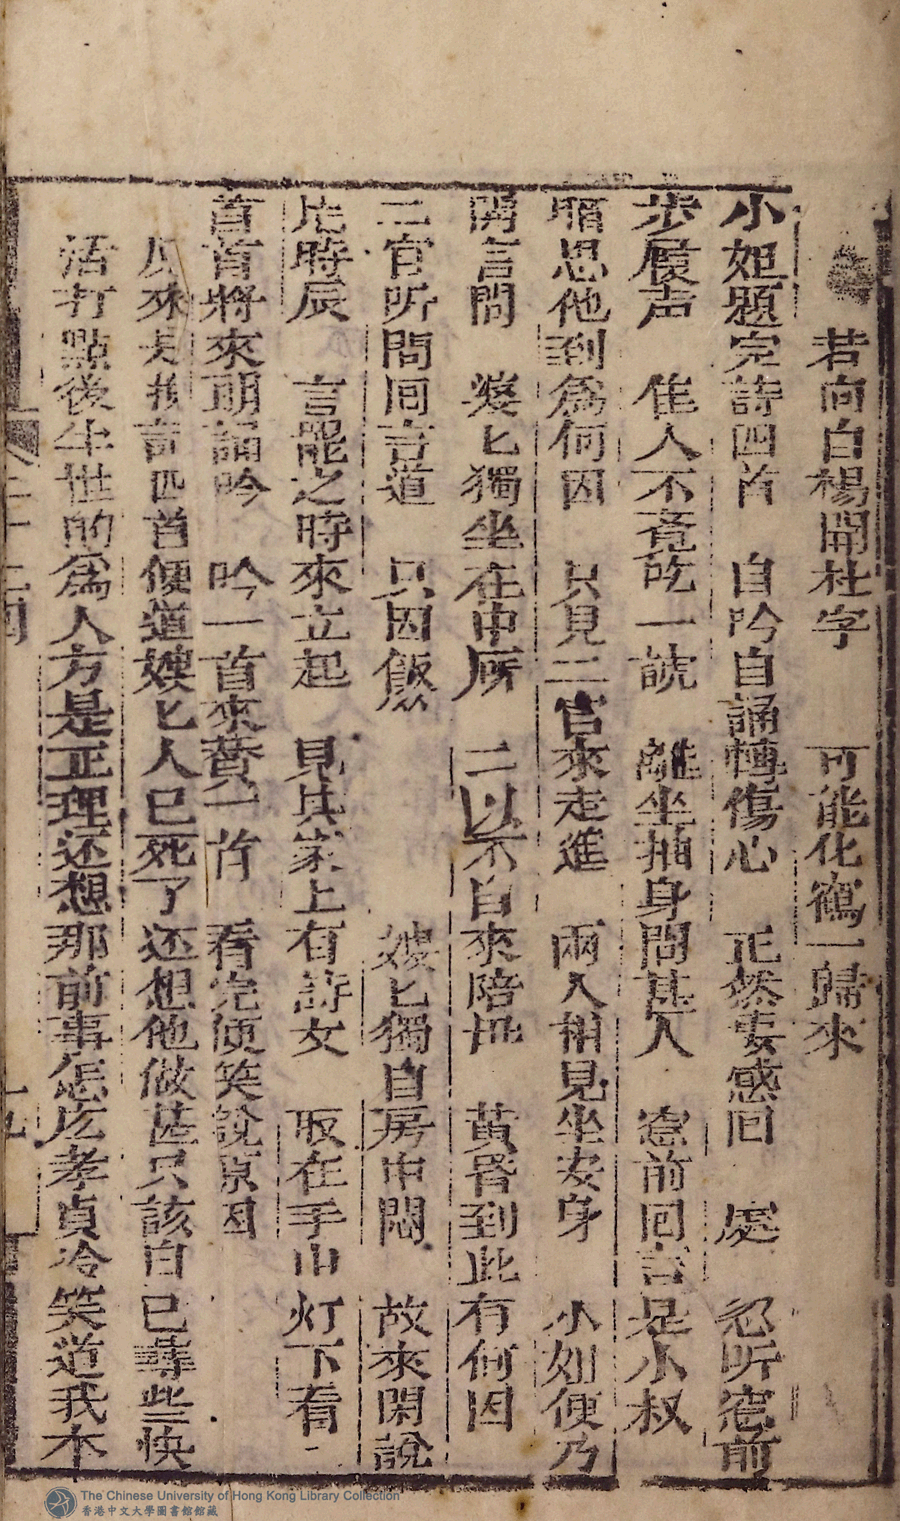 若向白楊開杜字　可能化鶴一歸來
小姐題完詩四首　自吟自誦轉傷心　正然妻感囘　處　忽听窓前
步履声　隹人不覔吃一諕　離坐抽身問甚人　窓前囘言是小叔
暗思他到爲何因　只見二官來走進　兩人相見坐安身　小如便乃
開言問　婆匕獨坐在中所　二以不自來陪　黄昏到此有何因
二官听問囘言道　只因飯　嫂匕獨自房中悶　故來閑說
片時辰　言罷之時來立起　見其家上有詩女　取在手中　灯下看
首首將來朗誦吟　吟一首來賛一首　看完便笑說原因
原來是　詩四首便道嫂匕人已死了还想他做甚只該自已尋些快
活打點後生世的爲人方是正理还想那前事怎庅孝貞冷笑道我本
二十二囘
十九
The Chinese University of Hong Kong Library Collection
香港中文大學圖書館館藏